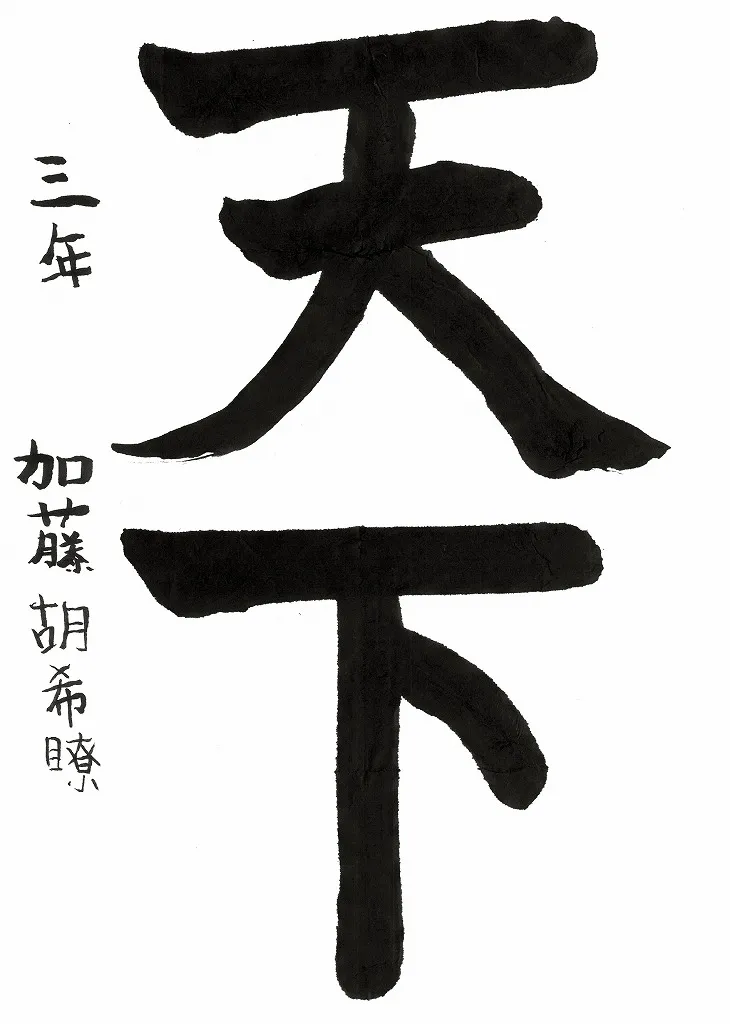 天下
三年 加藤胡希瞭